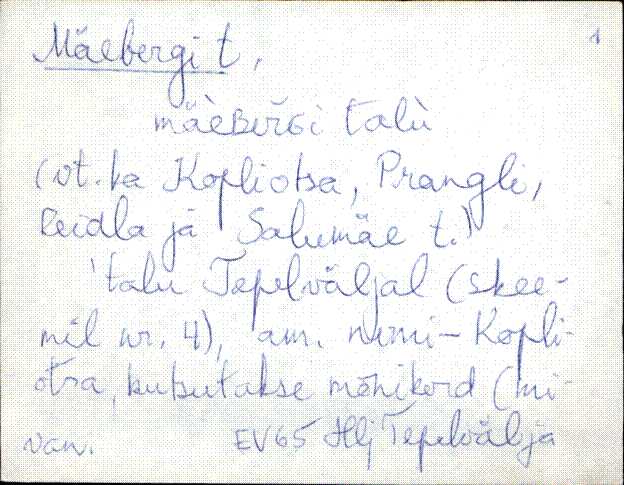 1
Mäebergi t.
mäèʙerGi talù
(vt. ka Kopliotsa, Prangli,
Reidla ja Salumäe t.)
'talu Tepelväljal (skee-
mil nr. 4), am. nimi - Kopli-
otsa, kutsutakse mõnikord (mi-
van. EV65 Hlj Tepelvälja